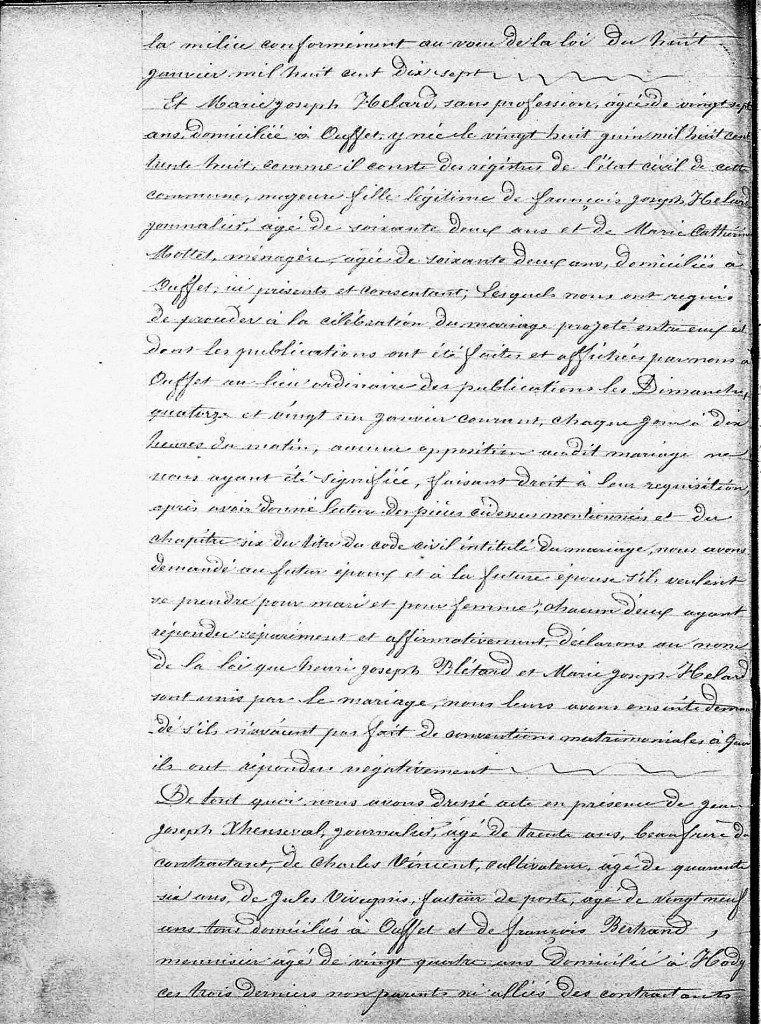 la milice conformément au voeu de la loi du huit
janvier mil huit cent dix sept
Et Marie Joseph Helard, sans profession, âgée de vingt sept
ans, domiciliée à Ouffet, y née le vingt huit juin mil huit cent
trente huit, comme il conste des régistres de l'état civil de cette
commune, majeure fille légitime de françois Joseph Helard
journalier, agé de soixante deux ans et de Marie Catherine
Mottet, ménagère, agée de soixante deux ans, domiciliés à
Ouffet, ici présents et consentant; Lesquels nous ont requis
de procéder à la célébration du mariage projeté entre eux et
dont les publications ont été faites et affichées par nous à
Ouffet au lieu ordinaire des publications les Dimanches
quatorze et vingt un janvier courant, chaque jour à dix
heures du matin, aucune opposition audit mariage ne
nous ayant été signifiée, faisant droit à leur requisition,
après avoir donné lecture des pièces cidessus mentionnées et du
chapitre six du titre du code civil intitulé du mariage, nous avons
demandé au futur époux et à la future épouse s'ils veulent
se prendre pour mari et pour femme; chacun d'eux ayant
répondu séparément et affirmativement, déclarons au nom
de la loi que henri Joseph Blétard et Marie Joseph Helard
sont unis par le mariage, nous leurs avons ensuite deman
dé s'ils n'avaient pas fait de conventions matrimoniales à quoi
ils ont répondu négativement
De tout quoi nous avons dressé acte en présence de jean
joseph Xhenseval, journalier, âgé de trente ans, beaufrère du
contractant, de Charles Vincent, cultivateur, agé de quarante
six ans, de Jules, facteur de poste, agé de vingt neuf
ans tous domiciliés à Ouffet et de françois Bertrand,
menuisier âgé de vingt quatre ans domicilié à Hody
ces trois derniers non parents ni alliés des contractants